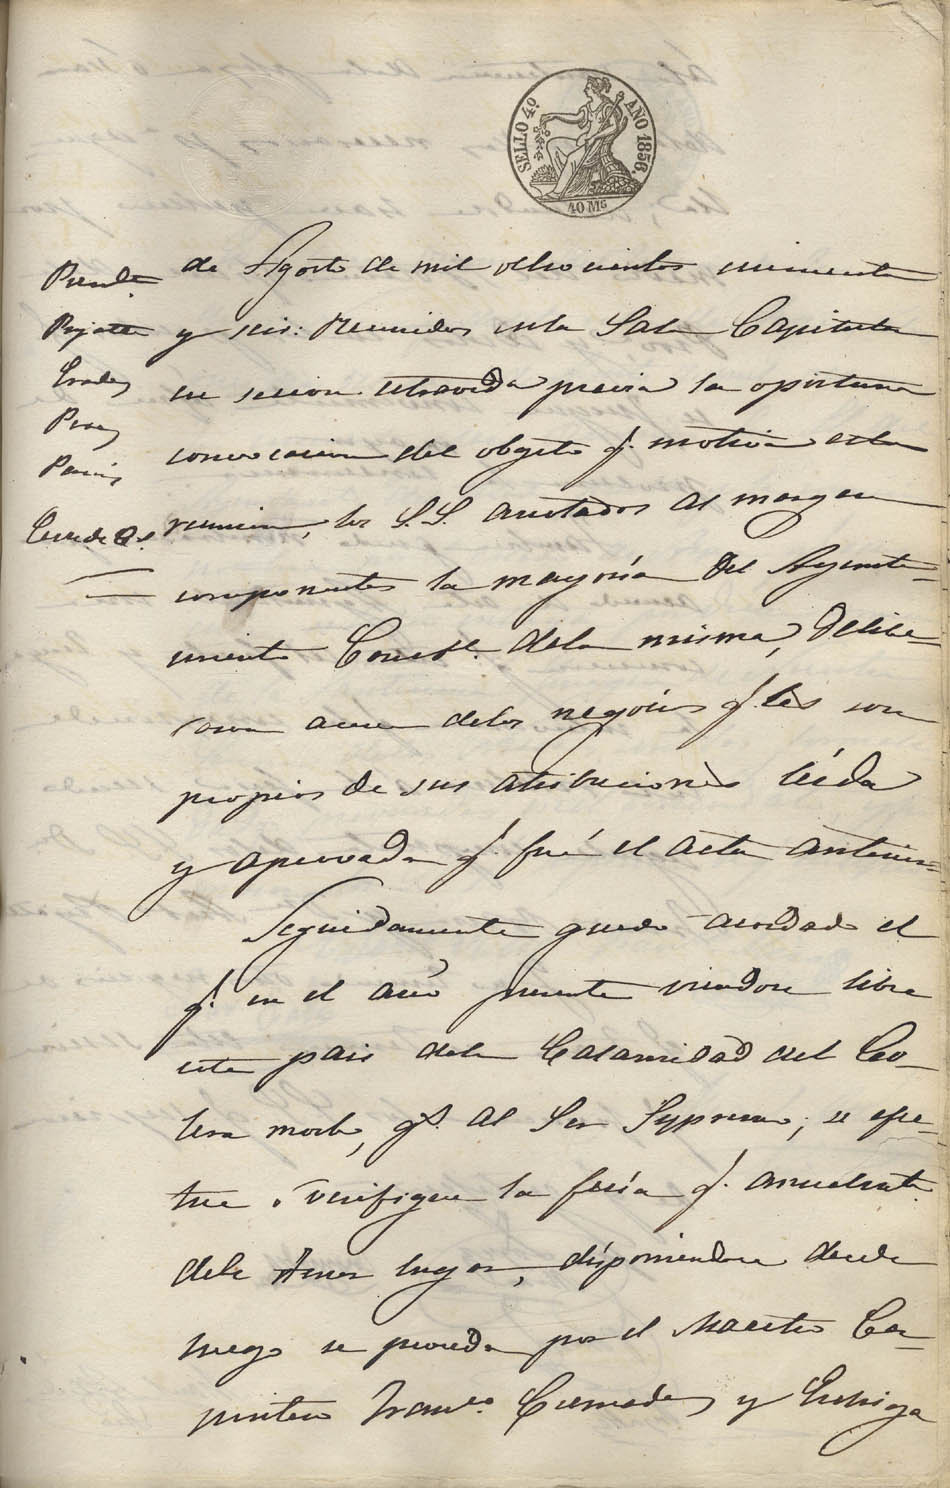 SELLO 4º AÑO 1856.
40 Ms
de Agosto de mil ochocientos cincuenta
y seis: Reunidos en la Sala Capitular
en sesion previa la oportuna
convocacion del objeto q. motiva esta
reunion, los S.S. anotados al margen
componentes la mayoría del Ayunta-
miento Const. de la misma, delibe
raron acerca de los negocios q. les son
propios de sus atribuciones leída
y aprovada q. fué el acta anterior.
Seguidamente quedo acordado el
q. en el año presente viendose libre
este pais de la Calamidad del Co-
lera morbo, g.s al Ser Supremo, se efec-
tue ó verifique la feria q. anualmte.
debe tener lugar, disponiendose desde
luego se proceda por el Maestro Car-
pintero Franco. y
Preside.